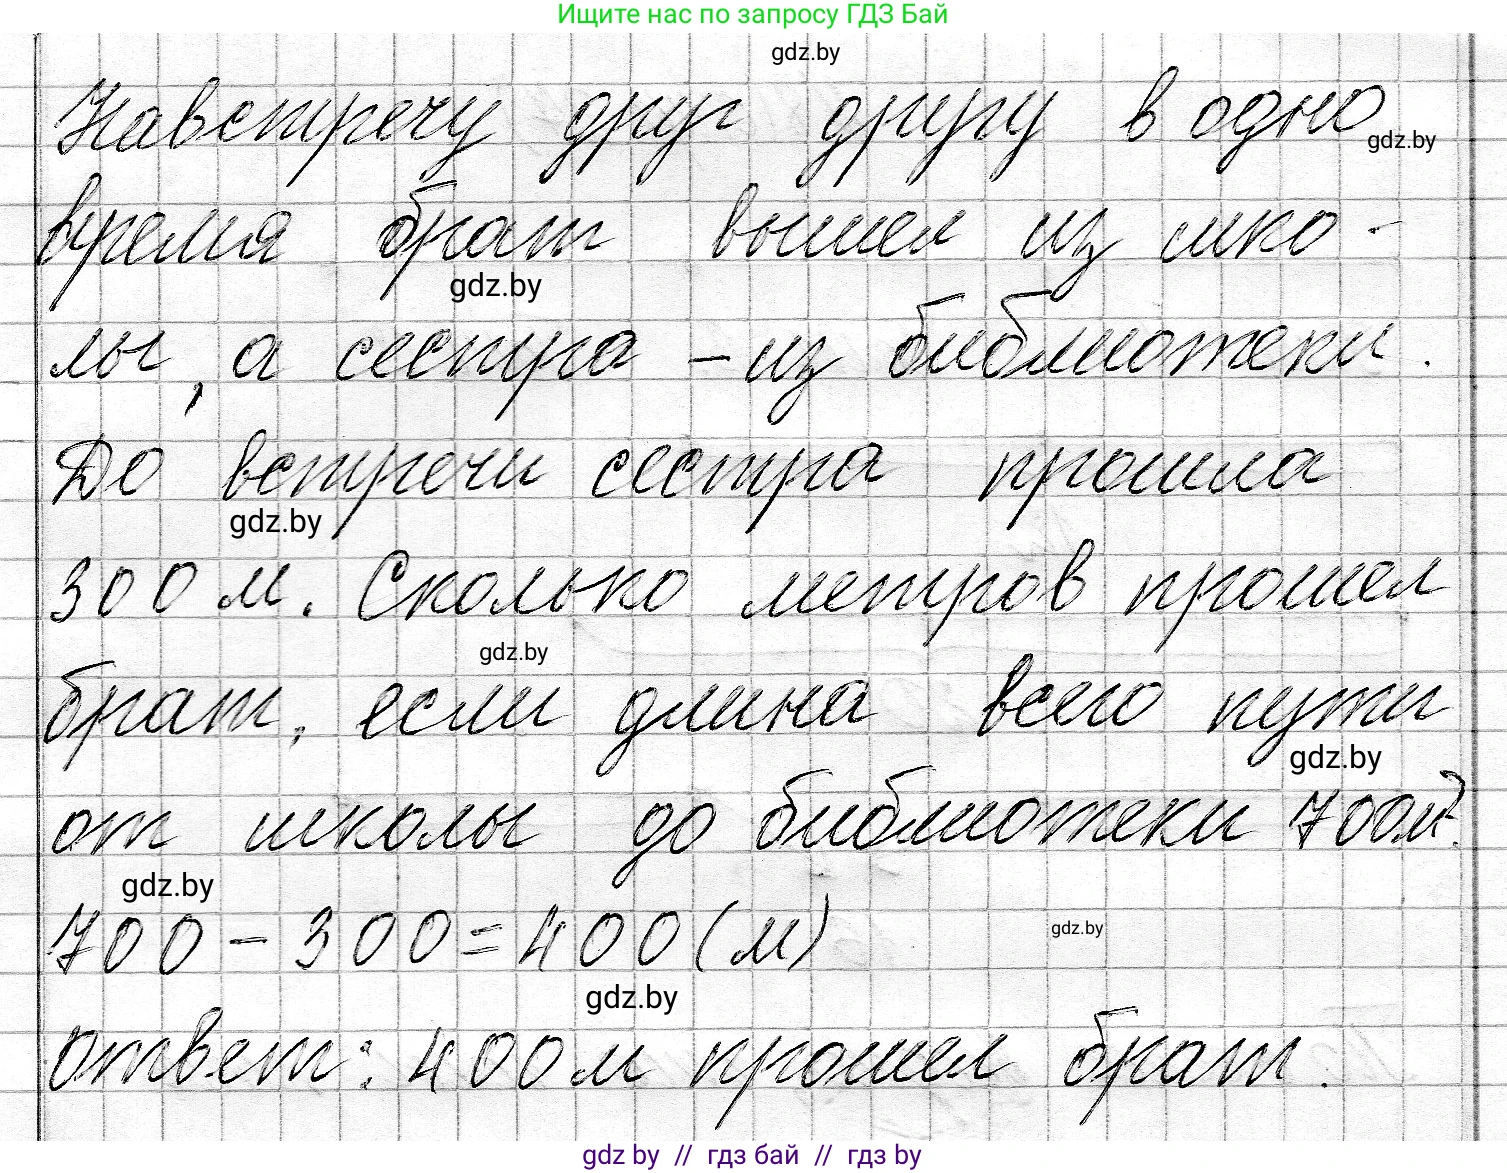 Ищите нас по запросу ГДЗ Бай
gdz.by
Навстречу друг другу в одно
gdz.by
время брат вышел из шко-
gdz.by
лы, а сестра – из библиотеки.
До встречи сестра прошла
gdz.by
300 м. Сколько метров прошел
gdz.by
брат, если длина всего пути
gdz.by
от школы до библиотеки 700м?
gdz.by
700 - 300 = 400 (м)
gdz.by
gdz.by
ответ: 400м прошел брат.
gdz.by // гдз бай // гдз by